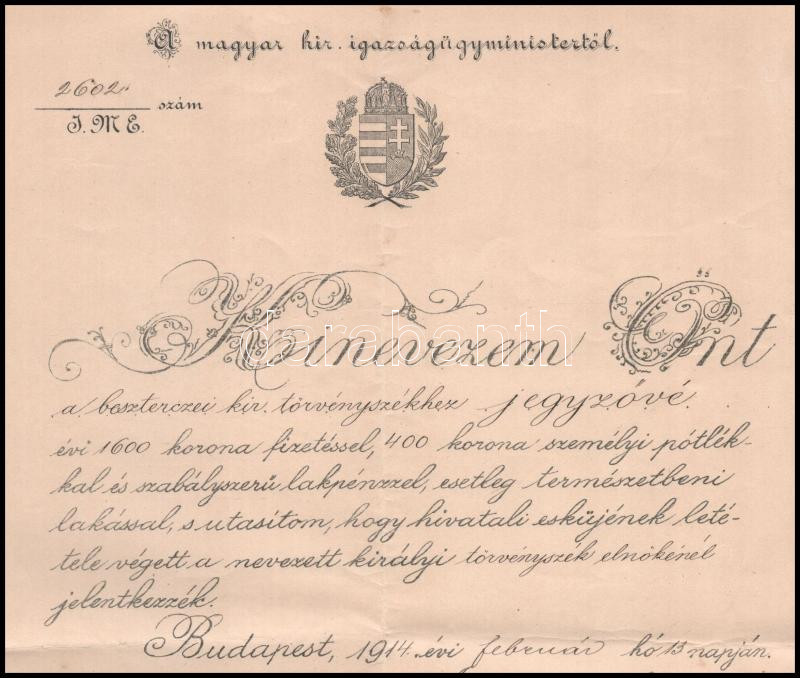 A magyar kir. igazságügyministertől.
2602.
szám
I. M E.
Kinevezem Önt
a beszterczei kir. törvényszékhez jegyzővé.
évi 1600 korona fizetéssel, 400 korona személyi pótlék-
kal és szabályszerű lakpénzzel, esetleg természetbeni
lakással, s utasítom, hogy hivatali esküjének leté-
tele végett a nevezett királyi törvényszék elnökénél
jelentkezzék.
Budapest, 1914. évi február hó 13 napján.
darabanth